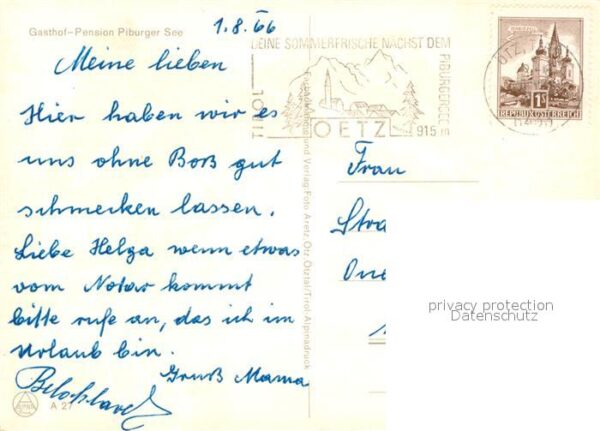 Gasthof-Pension Piburger See
1.8.66
Meine lieben
Hier haben wir es
uns ohne Boß gut
schmecken lassen.
Liebe Helga wenn etwas
vom Notar kommt
bitte rufe an, das ich im
Urlaub bin.
Gruß Mama
A 21
DEINE SOMMERFRISCHE NÄCHST DEM
PIBURGERSEE
TIROL
OETZ
915 m
und Verlag Foto Aretz Ötz Ötztal/Tirol-Alpinadruck
MARIAZELL
1S
REPUBLIK ÖSTERREICH
Frau
Stra
One
privacy protection
Datenschutz